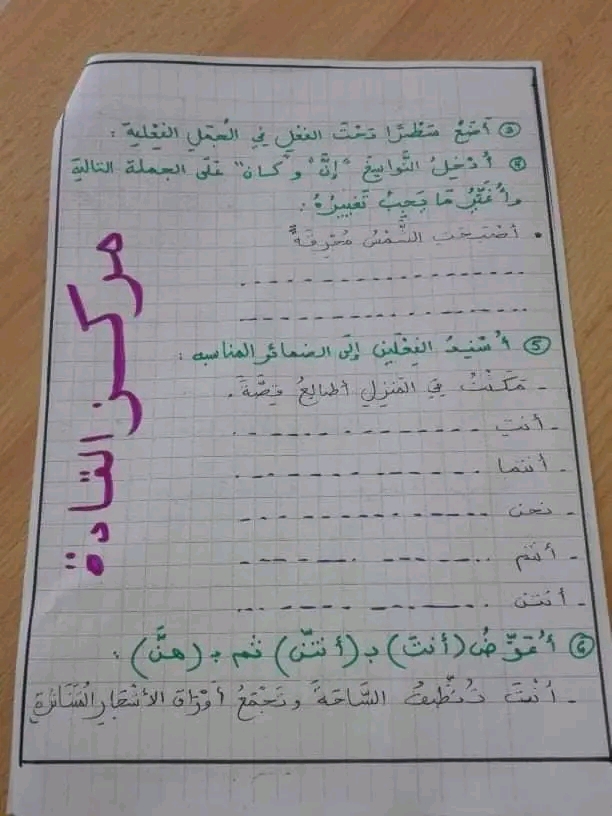 ③ أَضَعُ سَطْرًا تَحْتَ الفِعْلِ فِي الجُمَلِ الفِعْلِيَّةِ :
④ أُدْخِلُ النَّوَاسِخَ "إِنَّ" وَ"كَانَ" عَلَى الجملة التالية
وأُغَيِّرُ مَا يَجِبُ تَغْيِيرُهُ :
• أَصْبَحَتِ الشَّمْسُ مُحْرِقَةً
⑤ أُسْنِدُ الفِعْلَيْنِ إِلَى الضمائر المناسبه :
- مَكَثْتُ فِي المَنزِلِ أُطَالِعُ قِصَّةً .
- أنتِ
- أنتما
- نحن
- أنتم
- أنتن
⑥ أُعَوِّضُ (أنتَ) بـ (أنتنّ) ثم بـ (هنَّ) :
- أَنْتَ تُنَظِّفُ السَّاحَةَ وَتَجْمَعُ أَوْرَاقَ الأَشْجَارِ المُتَنَاثِرَةِ
مركز القادة